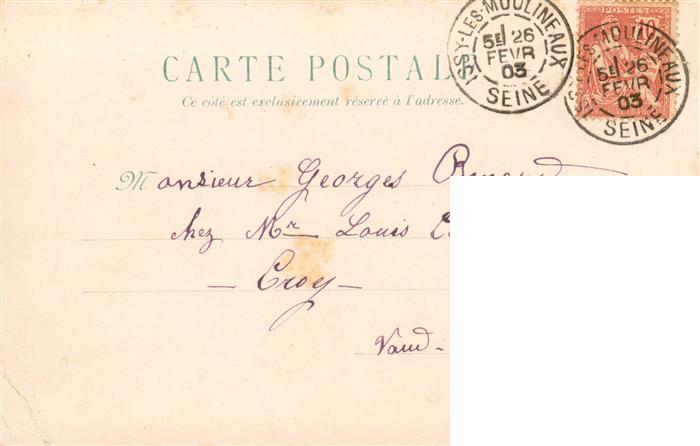 CARTE POSTALE
Ce côté est exclusivement réservé à l'adresse.
ISSY-LES-MOULINEAUX
5E 26
FEVR
03
SEINE
POSTES
10
ISSY-LES-MOULINEAUX
5E 26
FEVR
03
SEINE
Monsieur Georges
chez Mr Louis
— Croy —
Vaud -